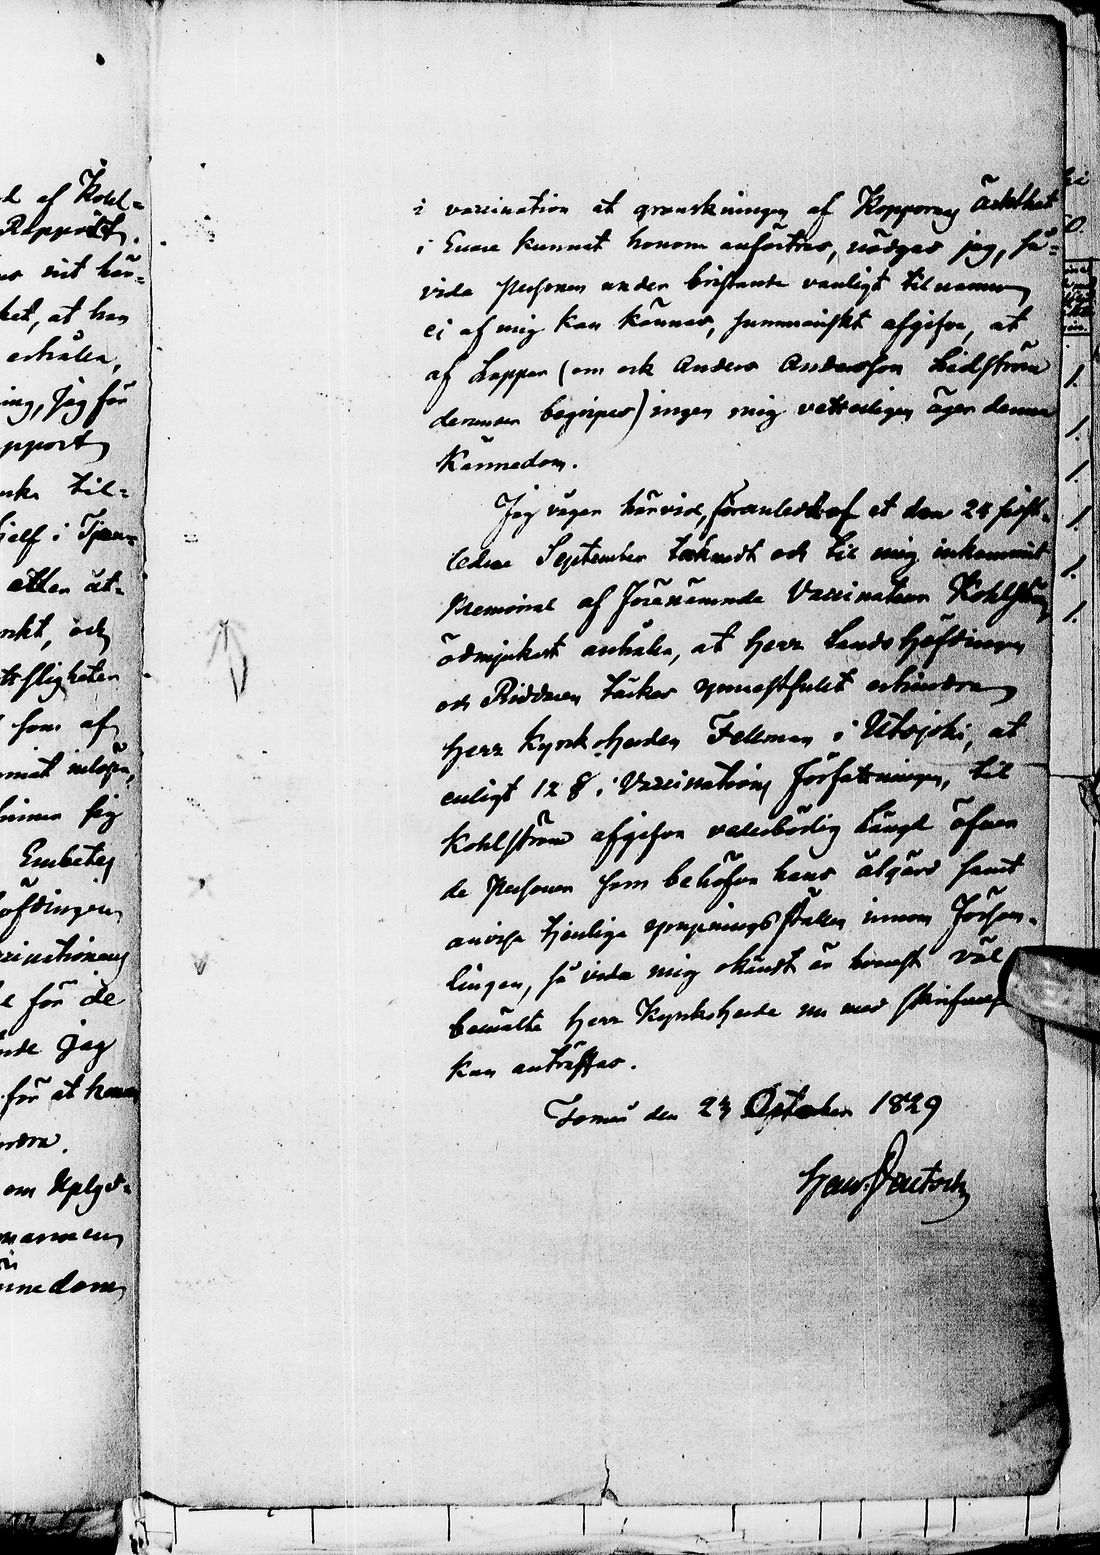 i vaccination at granskningen af Kopporng Ächthet
i Enare kunnat honom anförtros, nödgas jag, så-
vida Personen under bristande vanligt tilnamn
ej af mig kan kännas, summariskt afgifva, at
af Lappar (om ock Anders Andersson Lidström
derunder begripes) ingen mig vetterligen äger denna
Kännedom.
Jag vågar härvid, föranledd af et den 24 sist-
ledne September täknadt och til mig inkommit
Memorial af förenämnde Vaccinateur Kohlström
ödmjukast anhålla, at Herr Landshöfdingen
och Riddaren täckes gunstfullt erhindra
Herr Kyrkoherden Fellman i Utsjoki, at
enligt 12 § i Vaccinations författningen, til
Kohlström afgifva vederbörlig Längd öfver
de Personer som behöfva hans åtgärd samt
anvisa tjenliga ympningsställen innom Försam-
lingen, så vida mig okändt är hvarest väl
bemälte Herr Kyrkoherde nu med skrifvelse
kan anträffas.
Torneå den 23 October 1829
d af Kohl-
Rapport.
ket, at han
erhålla,
ing, Jag för
pport
til-
sielf i Tjen-
eller åt-
och
som af
sig
Embetes
öfdingen
ccinationens
för de
jag
för at honom
om Uplys-
nnedom
1.
1.
1.
1.
1.
1.